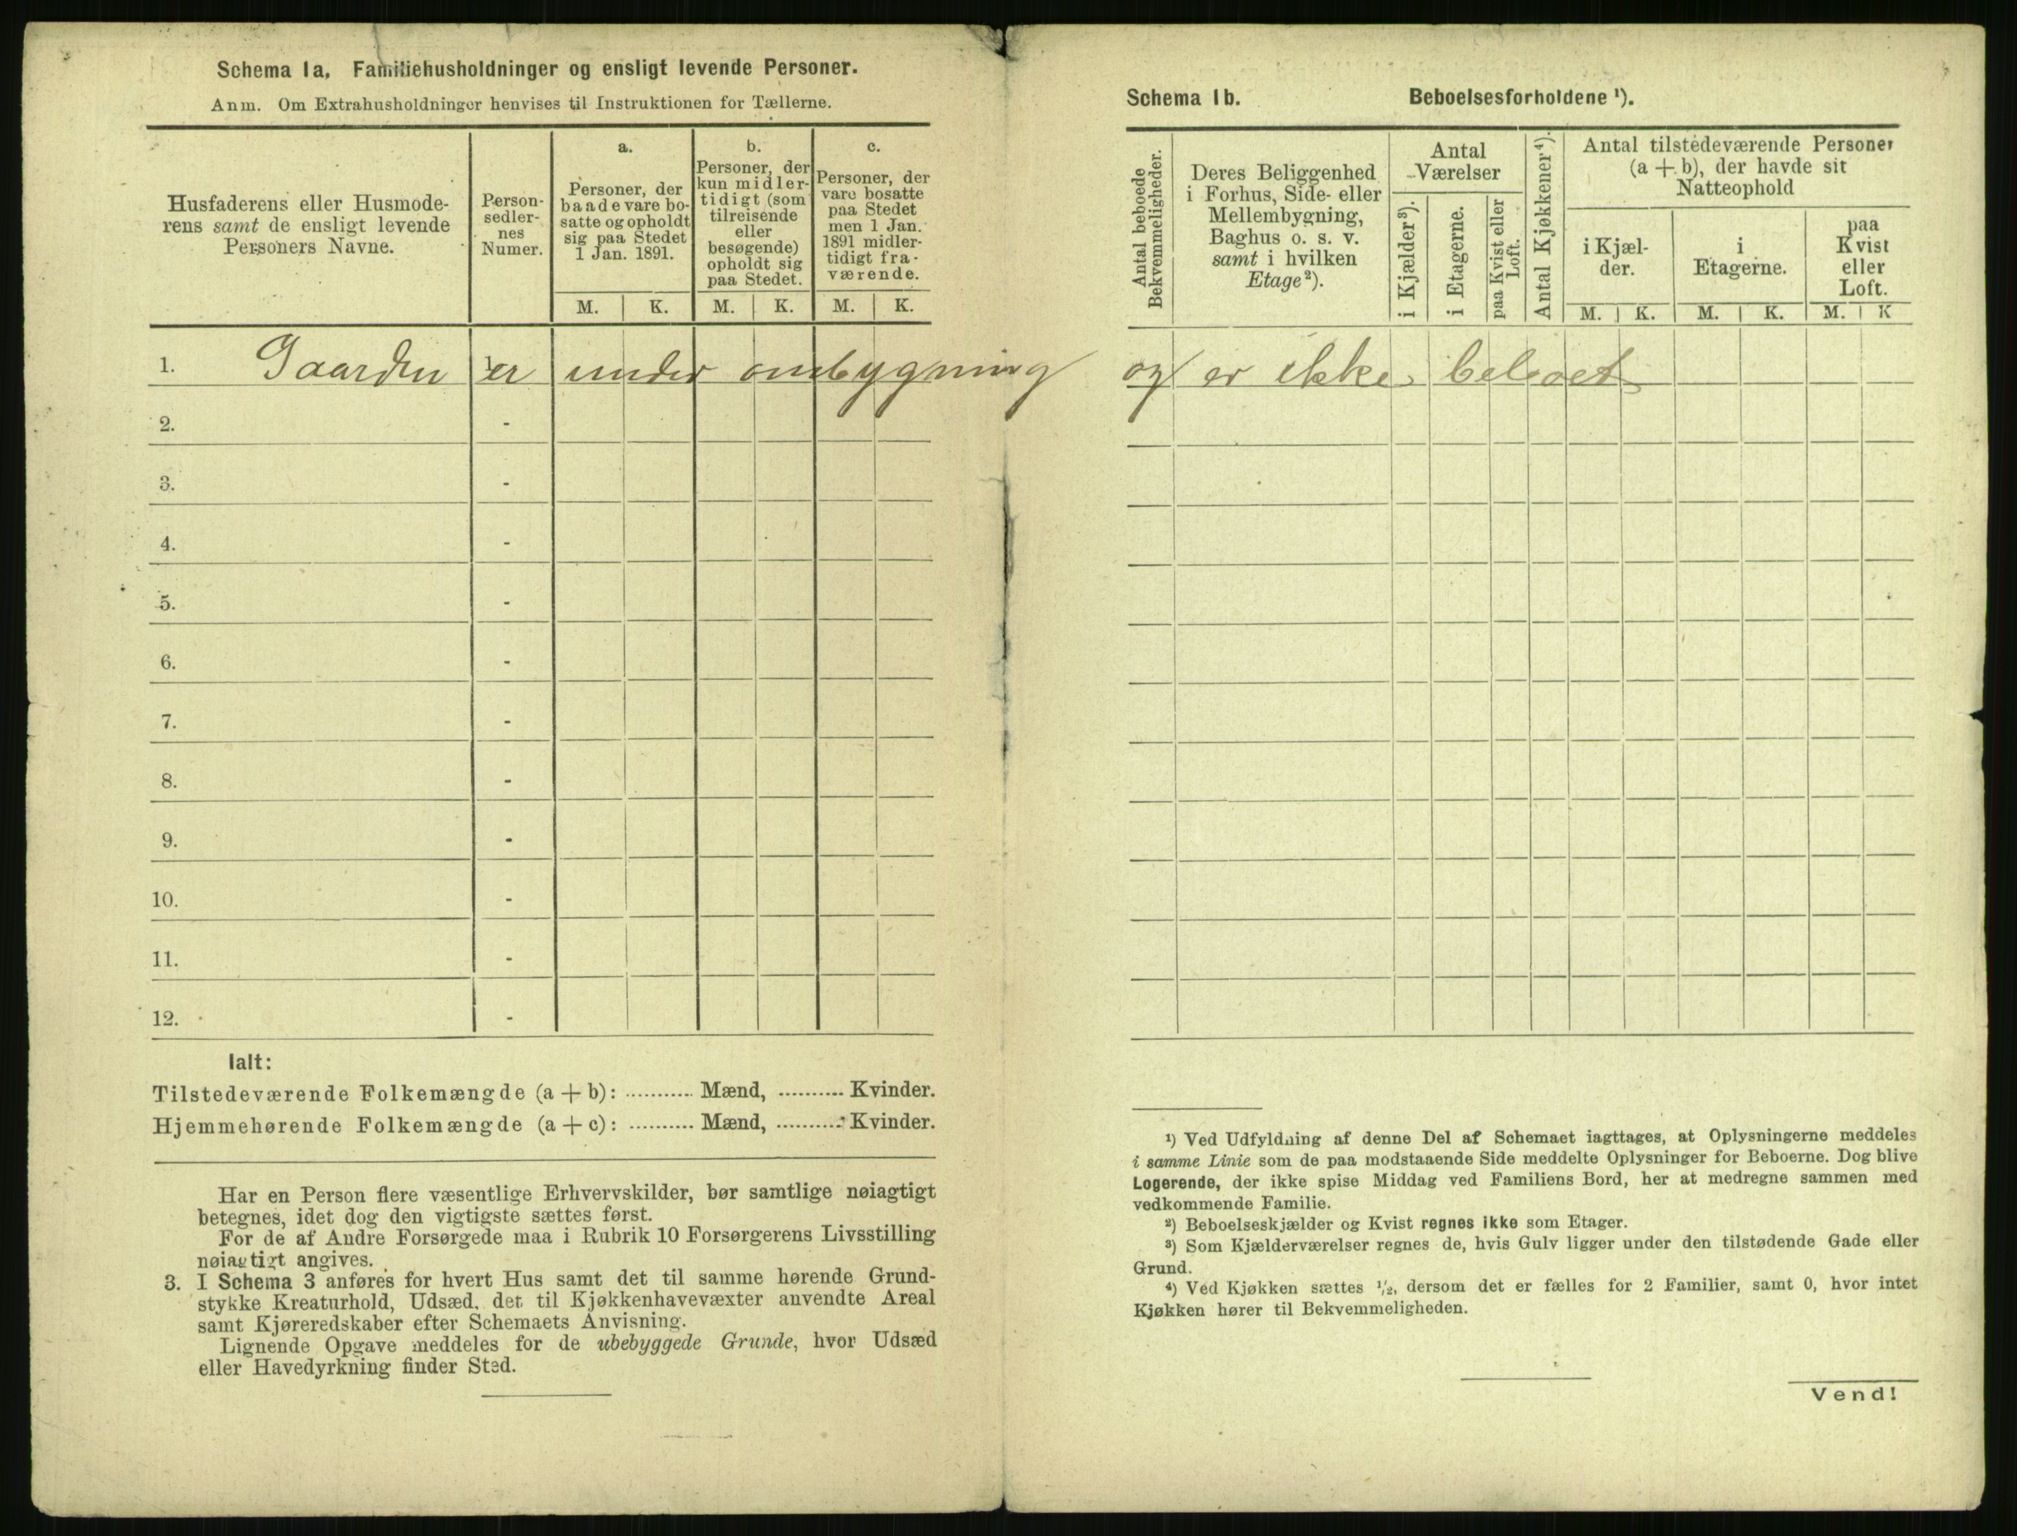 Schema 1a. Familiehusholdninger og ensligt levende Personer.
Anm. Om Extrahusholdninger henvises til Instruktionen for Tællerne.
Husfaderens eller Husmode-
rens samt de ensligt levende
Personers Navne.
Person-
sedler-
nes
Numer.
a.
Personer, der
baade vare bo-
satte og opholdt
sig paa Stedet
1 Jan. 1891.
M. K.
b.
Personer, der
kun midler-
tidigt (som
tilreisende
eller
besøgende)
opholdt sig
paa Stedet.
M. K.
c.
Personer, der
vare bosatte
paa Stedet
men 1 Jan.
1891 midler-
tidigt fra-
værende.
M. K.
1. Gaarden er under ombygning
2. -
3. -
4. -
5. -
6. -
7. -
8. -
9. -
10. -
11. -
12. -
Ialt:
Tilstedeværende Folkemængde (a + b): .......... Mænd, .......... Kvinder.
Hjemmehørende Folkemængde (a + c): .......... Mænd, .......... Kvinder.
Har en Person flere væsentlige Erhvervskilder, bør samtlige nøiagtigt
betegnes, idet dog den vigtigste sættes først.
For de af Andre Forsørgede maa i Rubrik 10 Forsørgerens Livsstilling
nøiagtigt angives.
3. I Schema 3 anføres for hvert Hus samt det til samme hørende Grund-
stykke Kreaturhold, Udsæd, det til Kjøkkenhavevæxter anvendte Areal
samt Kjøreredskaber efter Schemaets Anvisning.
Lignende Opgave meddeles for de ubebyggede Grunde, hvor Udsæd
eller Havedyrkning finder Sted.
Schema 1b. Beboelsesforholdene ¹).
Antal beboede
Bekvemmeligheder.
Deres Beliggenhed
i Forhus, Side- eller
Mellembygning,
Baghus o. s. v.
samt i hvilken
Etage²).
Antal
Værelser
i Kjælder³).
i Etagerne.
paa Kvist eller
Loft.
Antal Kjøkkener⁴).
Antal tilstedeværende Personer
(a + b), der havde sit
Natteophold
i Kjæl-
der.
i
Etagerne.
paa
Kvist
eller
Loft.
M. K. M. K. M. K
og er ikke beboet
¹) Ved Udfyldning af denne Del af Schemaet iagttages, at Oplysningerne meddeles
i samme Linie som de paa modstaaende Side meddelte Oplysninger for Beboerne. Dog blive
Logerende, der ikke spise Middag ved Familiens Bord, her at medregne sammen med
vedkommende Familie.
²) Beboelseskjælder og Kvist regnes ikke som Etager.
³) Som Kjælderværelser regnes de, hvis Gulv ligger under den tilstødende Gade eller
Grund.
⁴) Ved Kjøkken sættes ¹/₂, dersom det er fælles for 2 Familier, samt 0, hvor intet
Kjøkken hører til Bekvemmeligheden.
Vend!